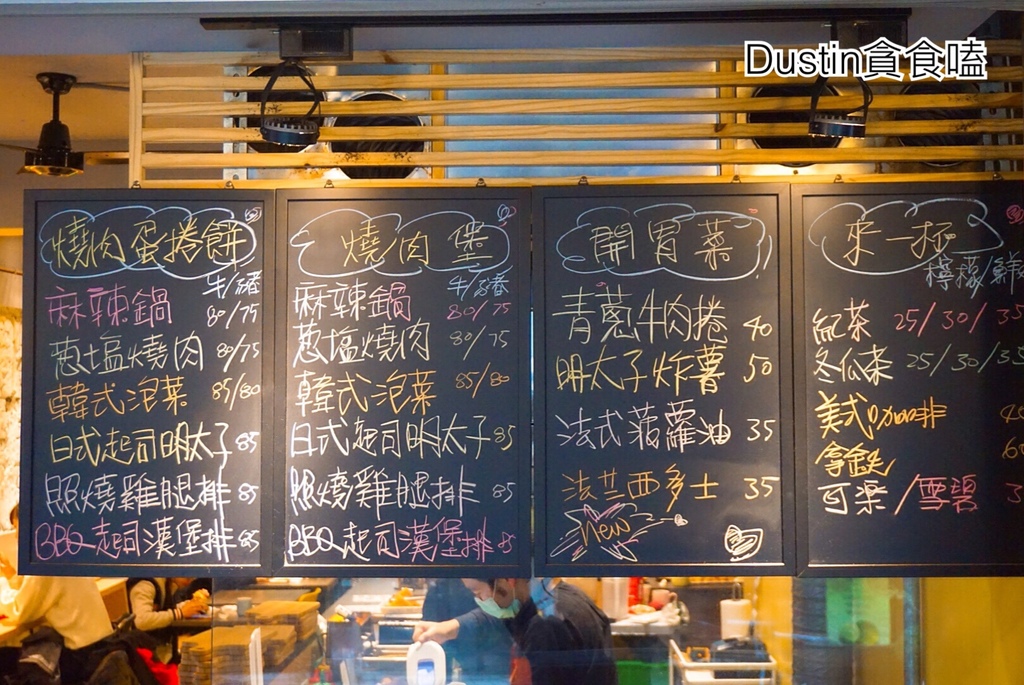 Dustin貪食嗑
燒肉蛋捲餅
牛/豬
麻辣鍋 80/75
蔥塩燒肉 80/75
韓式泡菜 85/80
日式起司明太子 85
照燒雞腿排 85
BBQ起司漢堡排 85
燒肉堡
牛/豬
麻辣鍋 80/75
蔥塩燒肉 80/75
韓式泡菜 85/80
日式起司明太子 85
照燒雞腿排 85
BBQ起司漢堡排 85
開胃菜
青蔥牛肉捲 40
明太子炸薯 50
法式菠蘿油 35
法兰西多士 35
New
來一杯
檸檬/鮮
紅茶 25/30/35
冬瓜茶 25/30/35
美式咖啡
拿鉄
可樂/雪碧